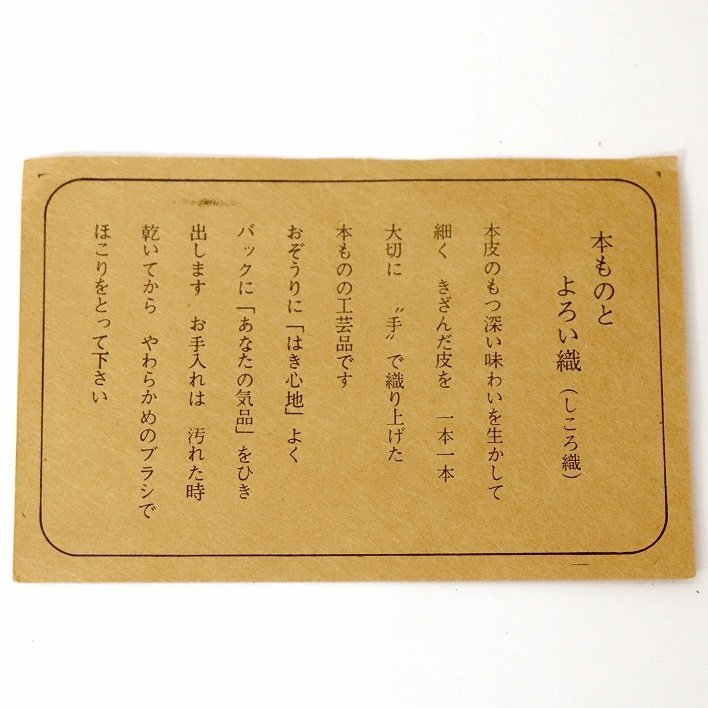 本ものと
よろい織（しころ織）
本皮のもつ深い味わいを生かして
細く　きざんだ皮を　一本一本
大切に　〝手〟で織り上げた
本ものの工芸品です
おぞうりに「はき心地」よく
バックに「あなたの気品」をひき
出します　お手入れは　汚れた時
乾いてから　やわらかめのブラシで
ほこりをとって下さい